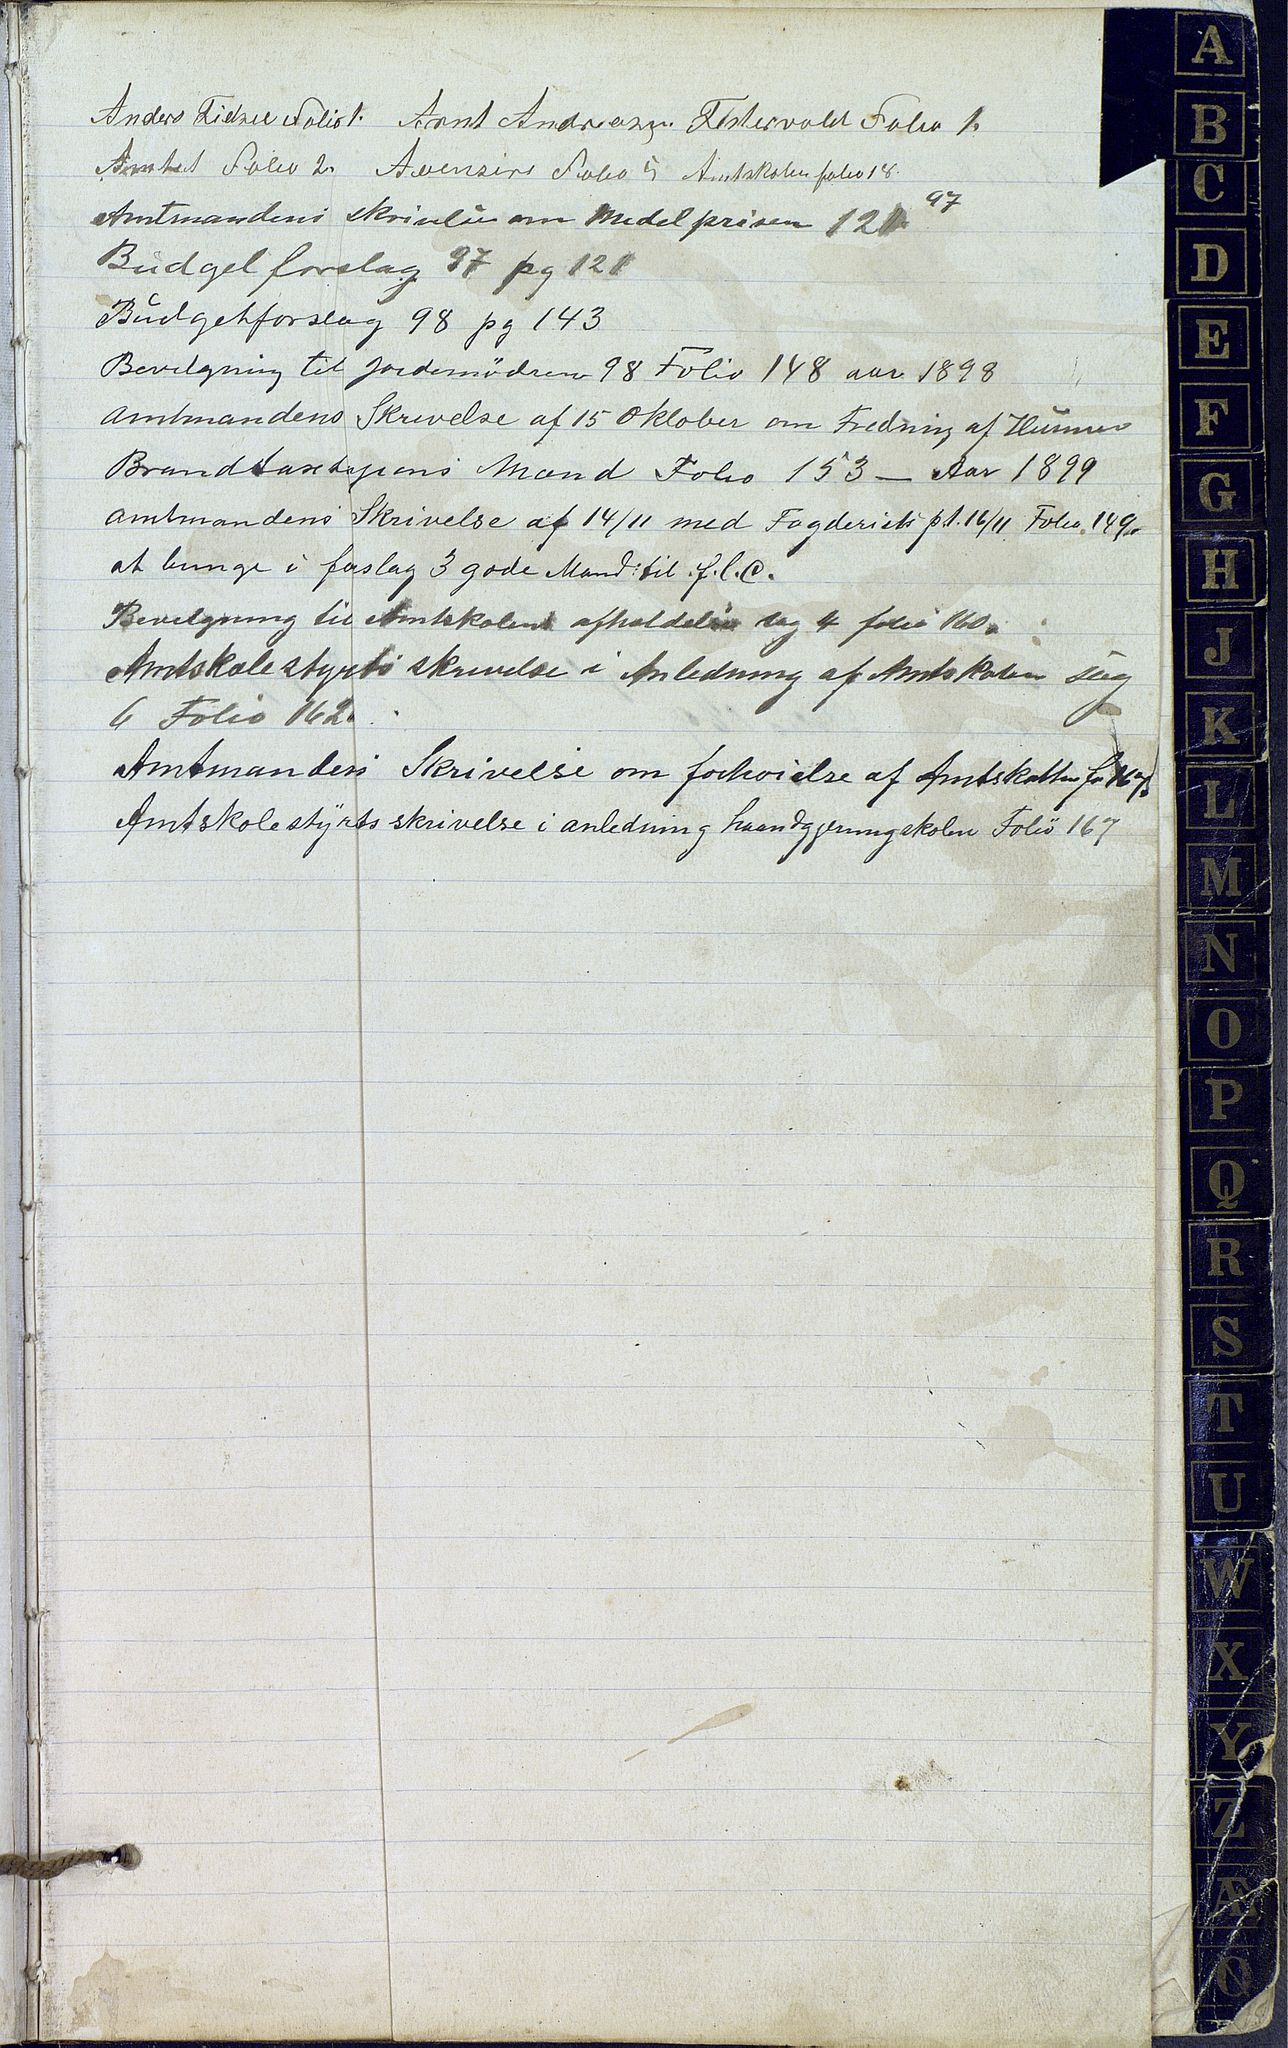 Anders Folio 1. Arnt Andreasen Festervold Folio 1.
Amtet Folio 2. Folio 5 Amtskolen folio 18.
Amtmandens om Medelprisen 121 97
Budgetforslag 97 pg 121
Budgetforslag 98 pg 143
Bevilgning til Jordemödrene 98 Folio 148 aar 1898
amtmandens Skrivelse af 15 Oktober om Fredning af
Mænd Folio 153 — Aar 1899
amtmandens Skrivelse af 14/11 med pt. 16/11 Folio 149
at i forslag 3 gode Mænd til f.l.C.
Bevilgning til Amtskolens afholdelse sag 4 folio 160.
Amtskolestyrets skrivelse i Anledning af Amtskolen sag
6 Folio 162.
Amtmandens Skrivelse om forhøielse af Amtskatten
Amtskolestyrets skrivelse i anledning haandgjerningskolen Folio 167
A
B
C
D
E
F
G
H
J
K
L
M
N
O
P
Q
R
S
T
U
W
X
Y
Z
Æ
Ø